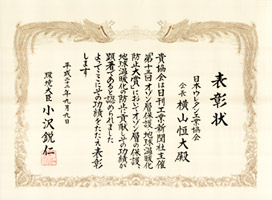 表彰状
日本ウレタン工業協会
会長 横山恒大殿
貴協会は日刊工業新聞社主催
第十三回オゾン層保護・地球温暖化
防止大賞においてオゾン層の保護、
地球温暖化の防止に貢献しその功績が
顕著であると認められました
よってここにその功績をたたえ表彰
します
平成二十二年九月九日
環境大臣 小沢鋭仁